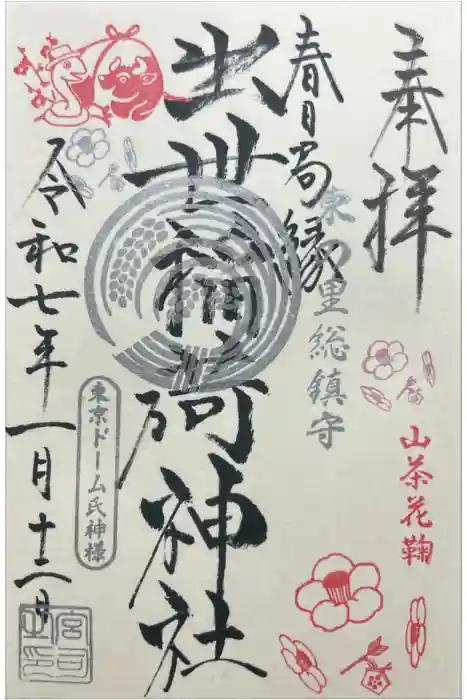 奉拝
山茶花鞠
春日局縁
東の里総鎮守
出世稲荷神社
東京ドーム氏神様
令和七年一月十二日
宮司之印